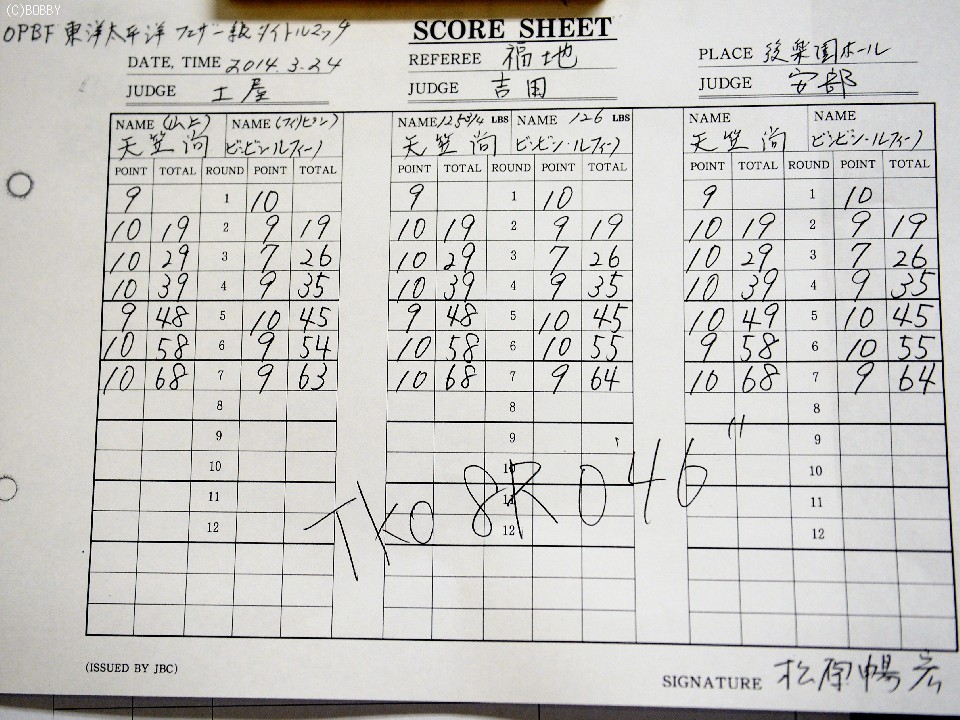 (C)BOBBY
OPBF 東洋太平洋 フェザー級タイトルマッチ
SCORE SHEET
DATE, TIME 2014.3.24 REFEREE 福地 PLACE 後楽園ホール
JUDGE 土屋 JUDGE 吉田 JUDGE 安部
NAME NAME (フィリピン) NAME 125 3/4 LBS NAME 126 LBS NAME NAME
天笠尚 ビンビン・ルフィーノ 天笠尚 ビンビン・ルフィーノ 天笠尚 ビンビン・ルフィーノ
POINT TOTAL ROUND POINT TOTAL POINT TOTAL ROUND POINT TOTAL POINT TOTAL ROUND POINT TOTAL
9 1 10 9 1 10 9 1 10
10 19 2 9 19 10 19 2 9 19 10 19 2 9 19
10 29 3 7 26 10 29 3 7 26 10 29 3 7 26
10 39 4 9 35 10 39 4 9 35 10 39 4 9 35
9 48 5 10 45 9 48 5 10 45 10 49 5 10 45
10 58 6 9 54 10 58 6 10 55 9 58 6 10 55
10 68 7 9 63 10 68 7 9 64 10 68 7 9 64
8 8 8
9 9 9
10 10 10
11 11 11
12 12 12
TKO 8R 0'46"
(ISSUED BY JBC)
SIGNATURE 松原暢宏